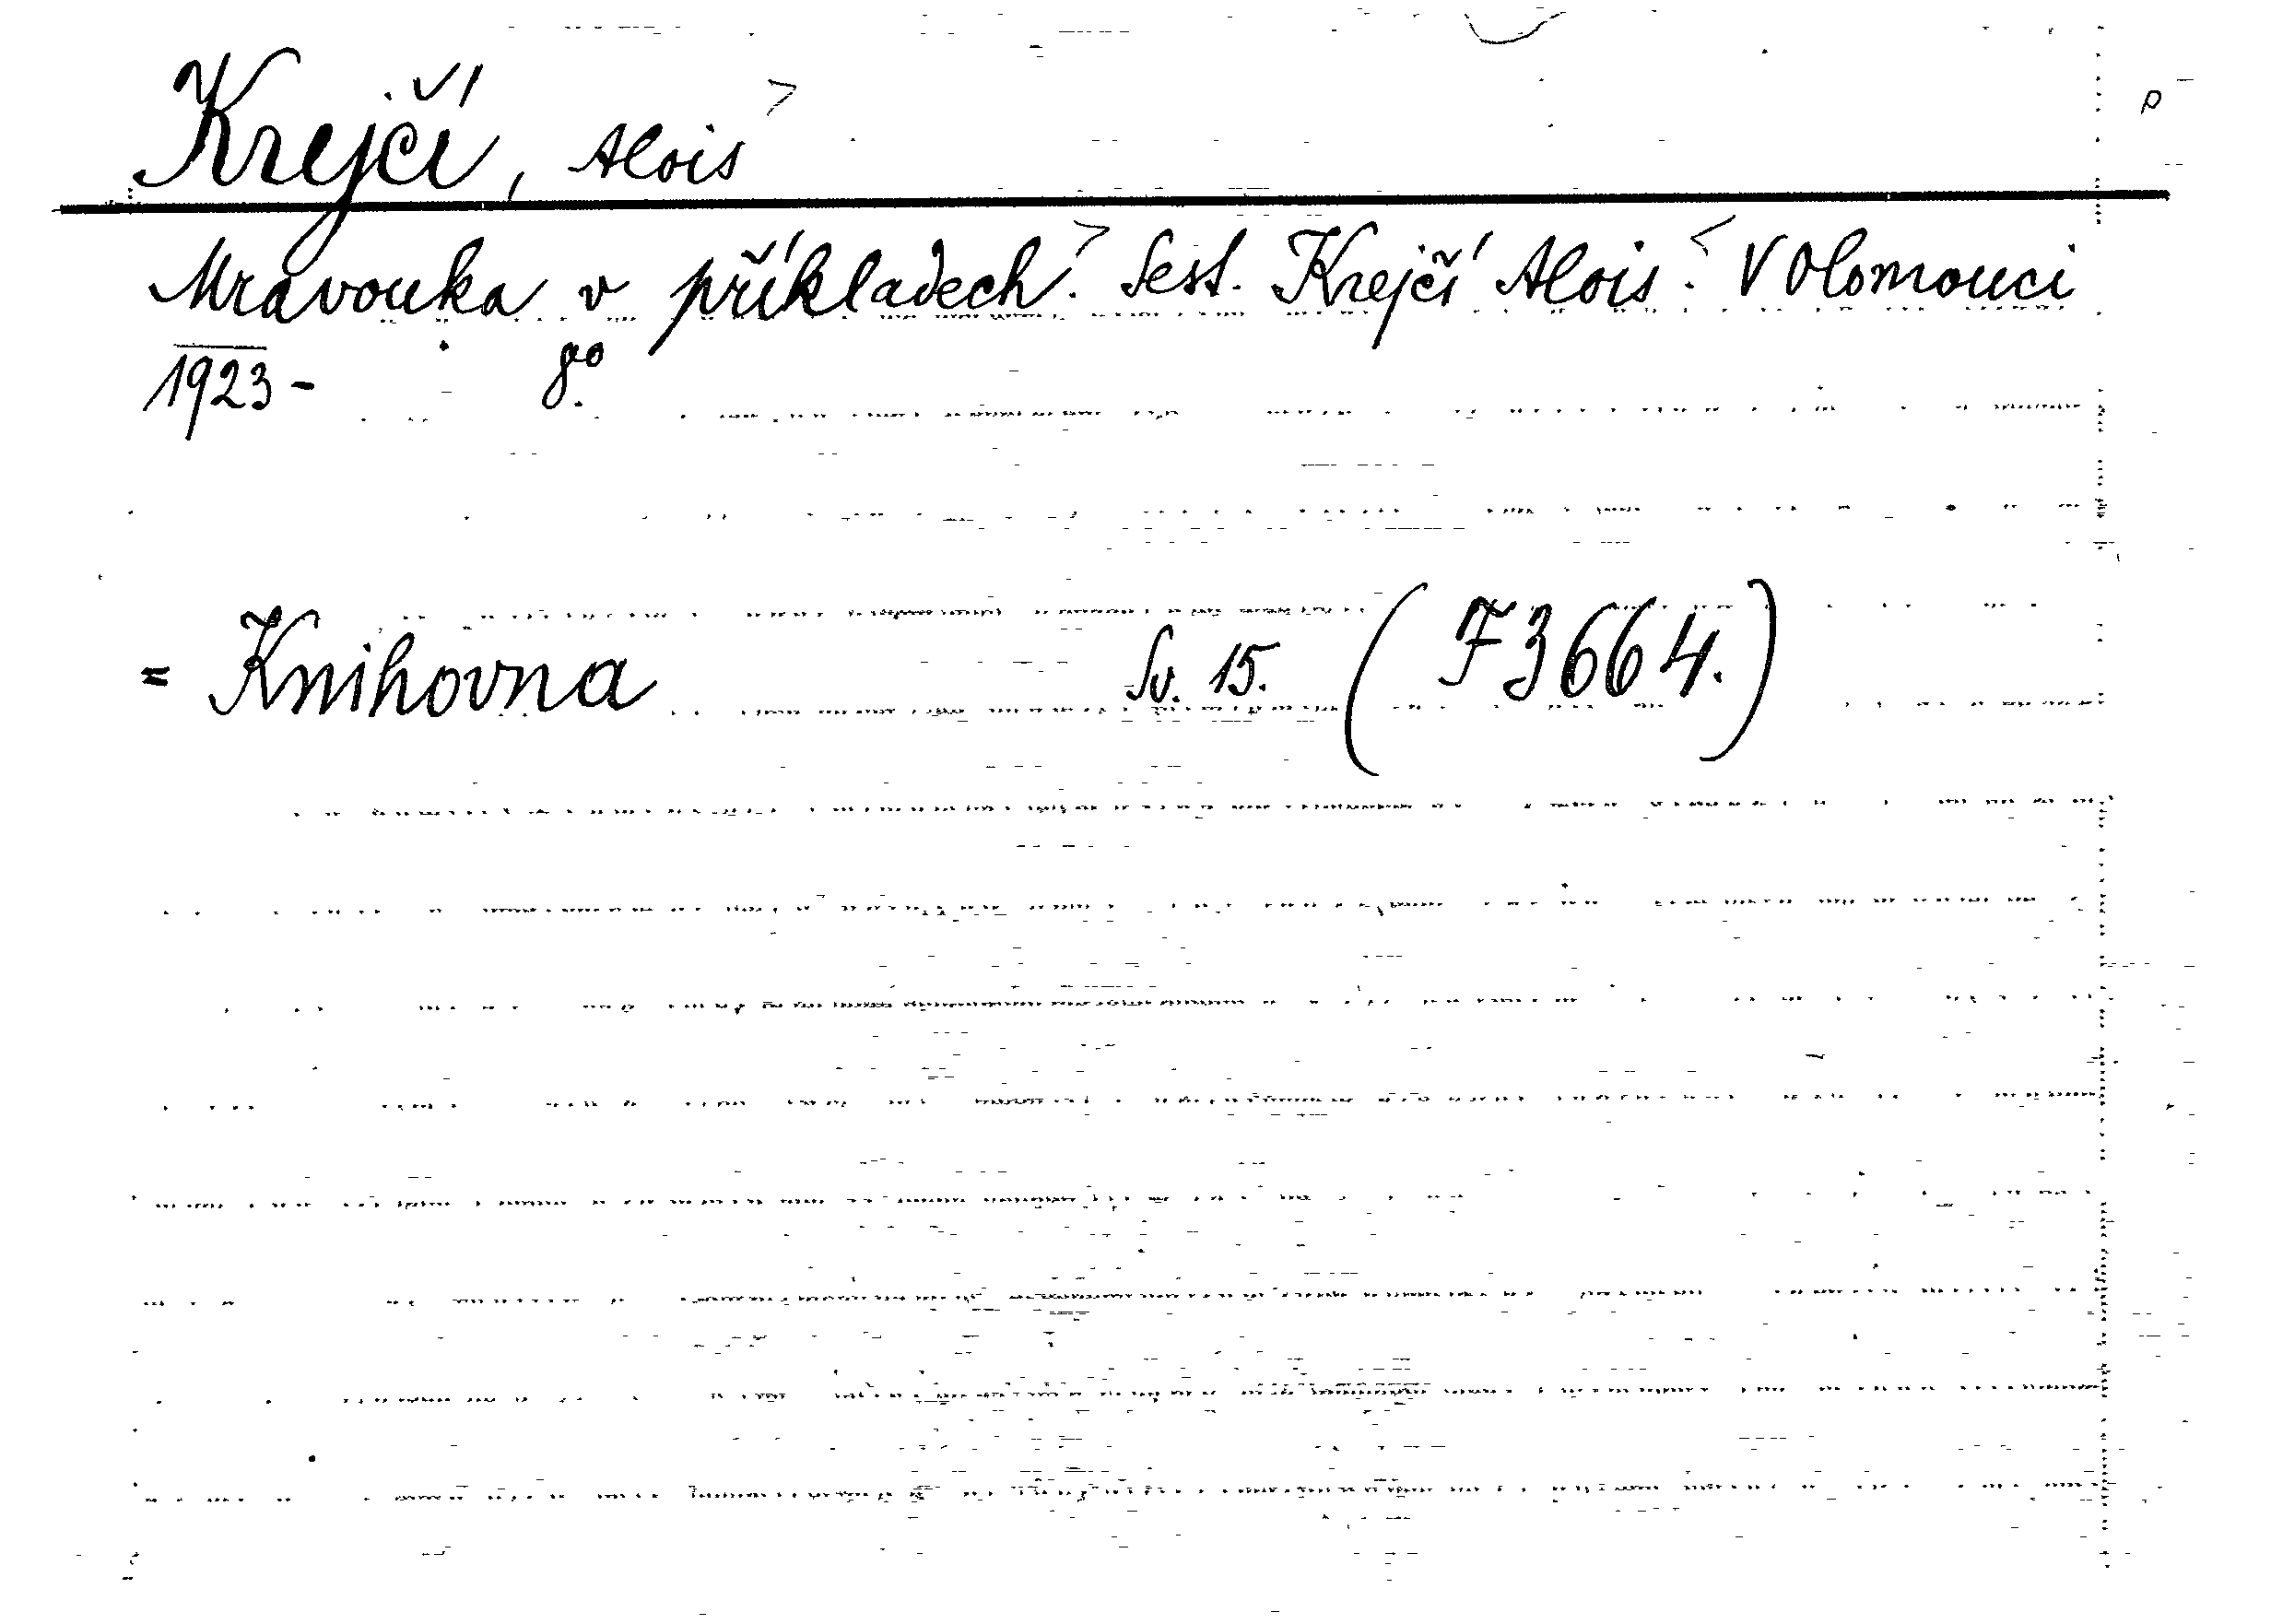 Krejčí, Alois
Mravouka v příkladech. Sest. Krejčí Alois. V Olomouci
1923- 8º.
= Knihovna Sv. 15. (F3664.)